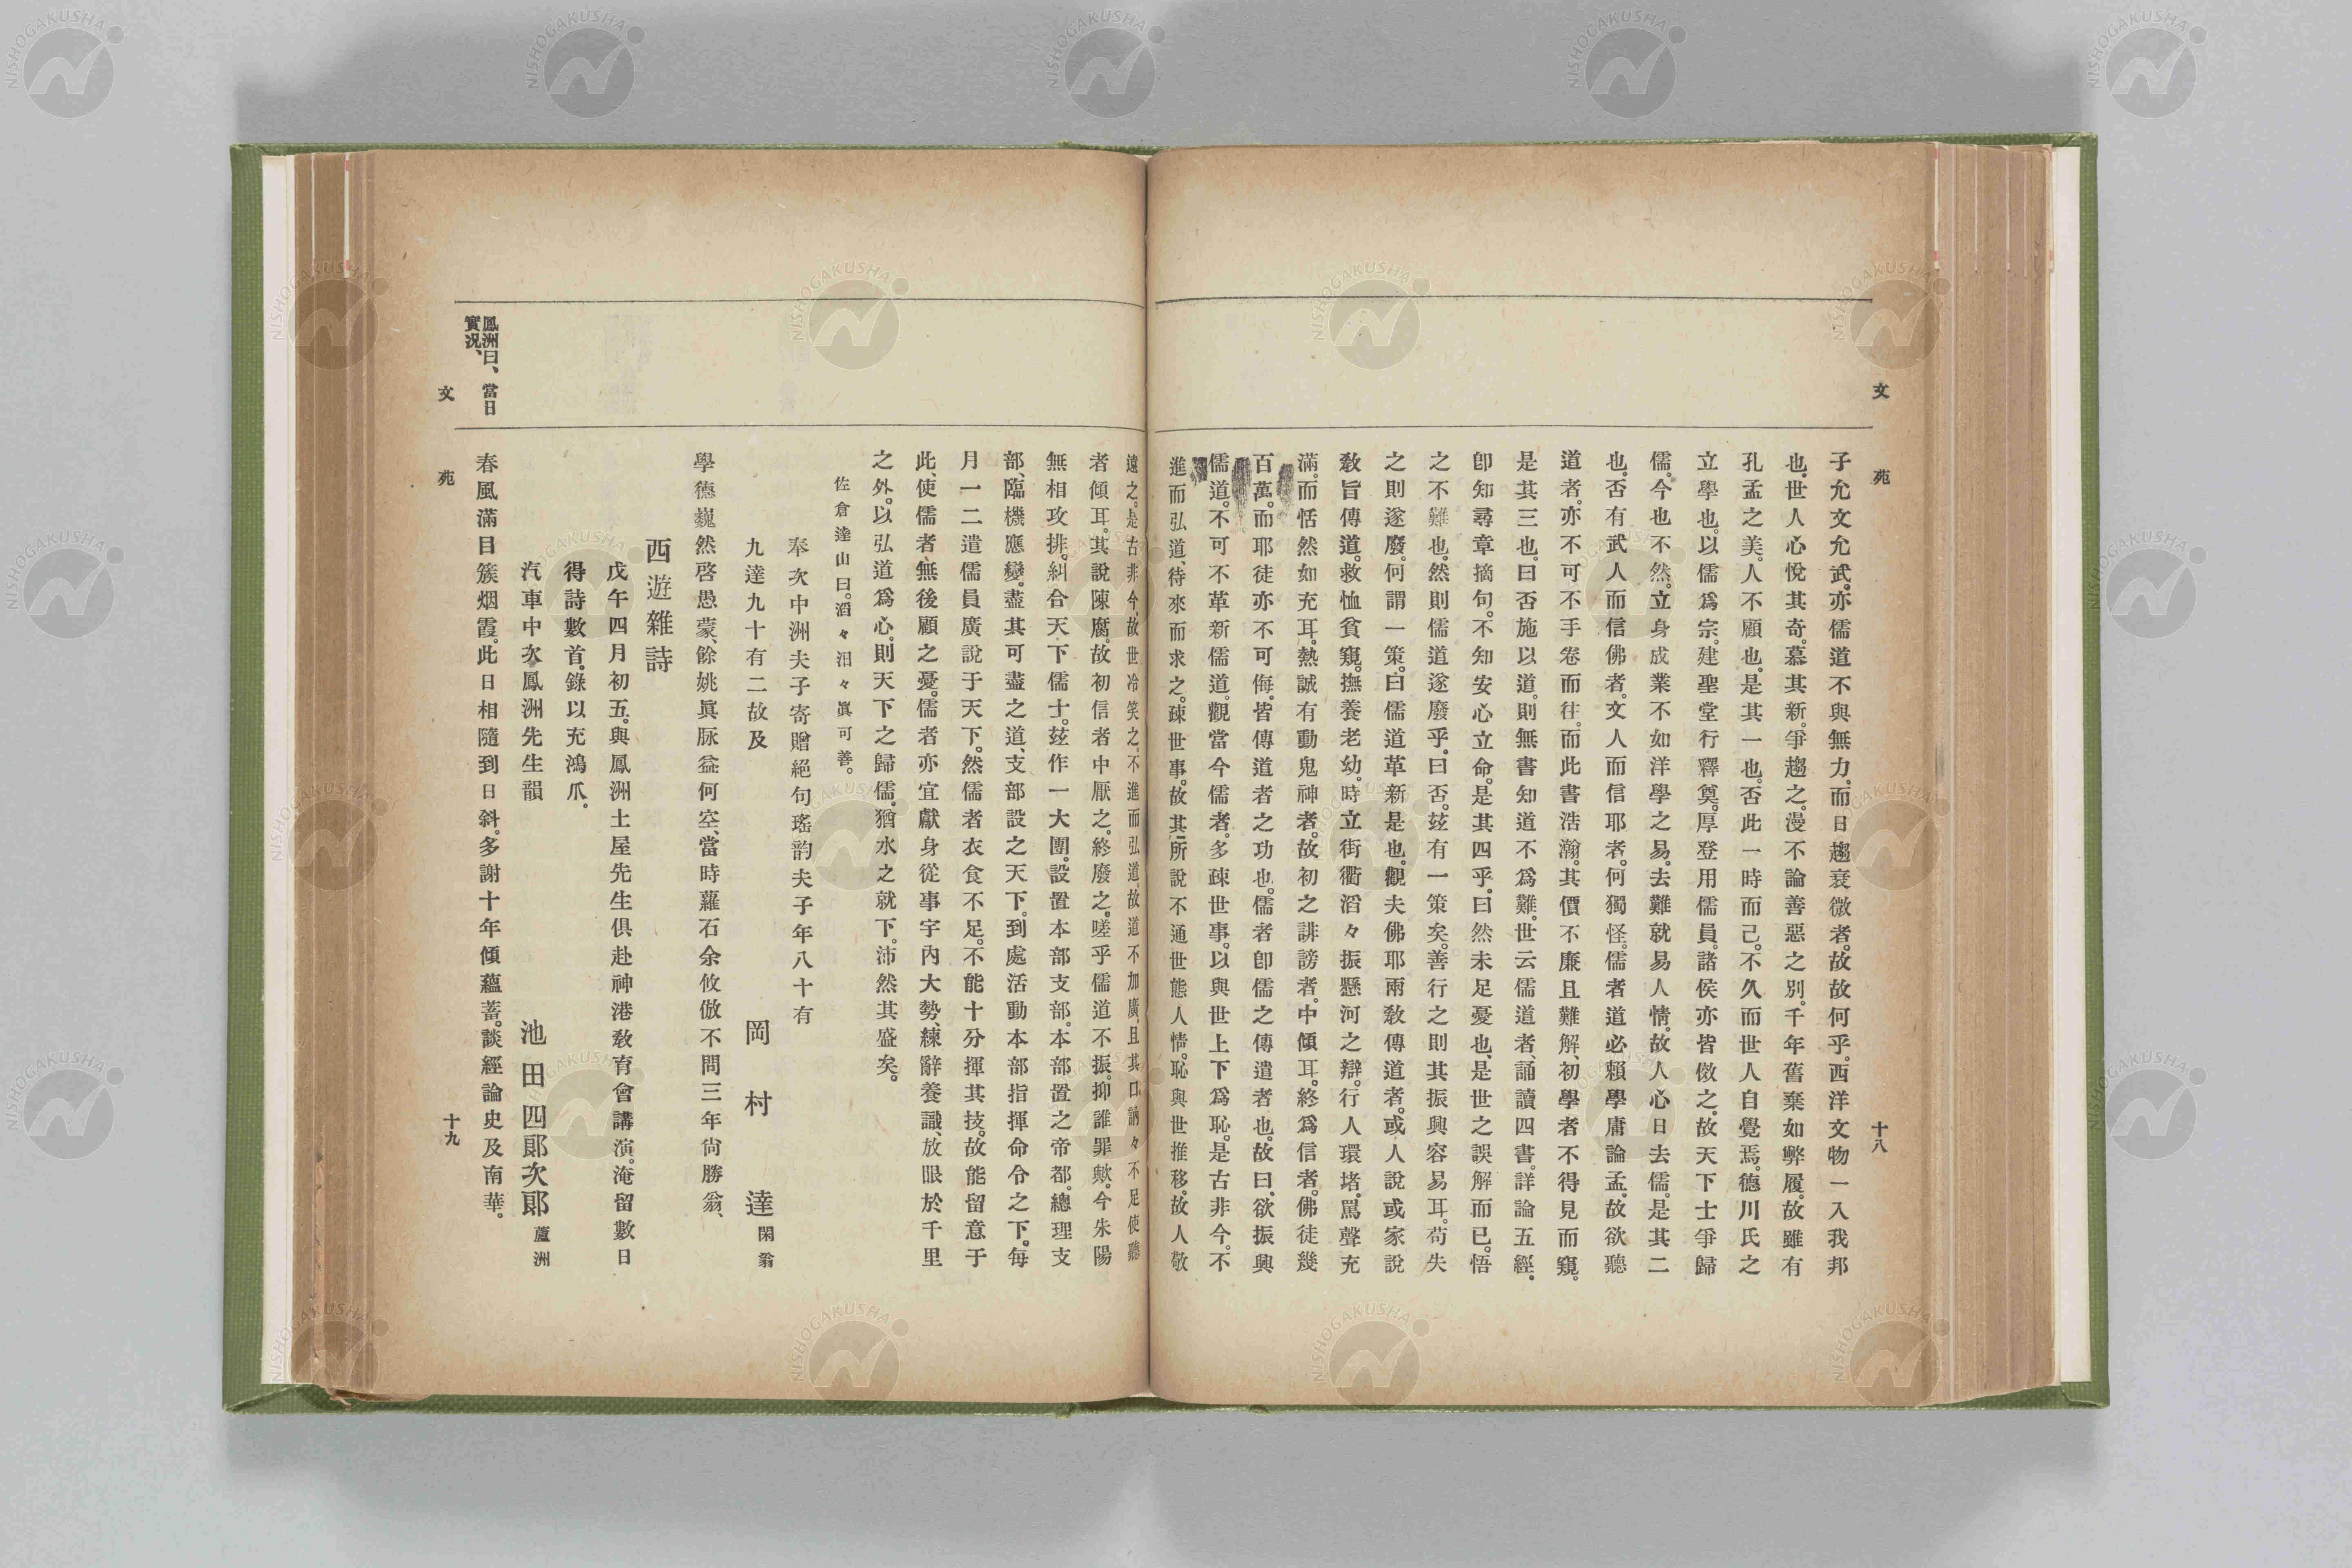 文苑 十八
子允文允武。亦儒道不與無力。而日趨衰微者。故故何乎。西洋文物一入我邦
也。世人心悅其奇。慕其新。爭趨之。漫不論善惡之別。千年舊棄如弊履。故雖有
孔孟之美。人不顧也。是其一也。否此一時而已。不久而世人自覺焉。德川氏之
立學也。以儒爲宗。建聖堂行釋奠。厚登用儒員。諸侯亦皆傚之。故天下士爭歸
儒。今也不然。立身成業不如洋學之易。去難就易人情。故人心日去儒。是其二
也。否有武人而信佛者。文人而信耶者。何獨怪。儒者道必賴學庸論孟。故欲聽
道者。亦不可不手卷而往。而此書浩瀚。其價不廉且難解、初學者不得見而窺。
是其三也。曰否施以道。則無書知道不爲難。世云儒道者、誦讀四書。詳論五經。
卽知尋章摘句。不知安心立命。是其四乎。曰然未足憂也、是世之誤解而已。悟
之不難也。然則儒道遂廢乎。曰否。玆有一策矣。善行之則其振興容易耳。苟失
之則遂廢。何謂一策。曰儒道革新是也。觀夫佛耶兩敎傳道者。或人說或家說
敎旨傳道。救恤貧窺。撫養老幼。時立街衢滔々振懸河之辯。行人環堵。罵聲充
滿。而恬然如充耳。熱誠有動鬼神者。故初之誹謗者。中傾耳。終爲信者。佛徒幾
百萬。而耶徒亦不可侮。皆傳道者之功也。儒者卽儒之傳遣者也。故曰。欲振興
儒道。不可不革新儒道。觀當今儒者。多疎世事。以與世上下爲恥。是古非今。不
進而弘道、待來而求之。疎世事。故其所說不通世態人情。恥與世推移。故人敬
遠之。是古非今、故世冷笑之。不進而弘道。故道不加廣、且其口訥々不足使聽
者傾耳。其說陳腐。故初信者中厭之。終廢之。嗟乎儒道不振。抑誰罪歟。今朱陽
無相攻排。糾合天下儒士。玆作一大團。設置本部支部。本部置之帝都。總理支
部、臨機應變。盡其可盡之道、支部設之天下。到處活動本部指揮命令之下。每
月一二遣儒員廣說于天下。然儒者衣食不足。不能十分揮其技。故能留意于
此、使儒者無後顧之憂。儒者亦宜獻身從事宇內大勢、練辭養識、放眼於千里
之外。以弘道爲心。則天下之歸儒。猶水之就下。沛然其盛矣。
佐倉達山曰。滔々汨々眞可善。
奉次中洲夫子寄贈絕句瑤韵夫子年八十有
九達九十有二故及 岡村達 閑翁
學德巍然啓愚蒙、餘姚眞脉益何空、當時蘿石余攸倣不問三年尙勝翁、
西遊雜詩
戊午四月初五。與鳳洲土屋先生俱赴神港敎育會講演。淹留數日
得詩數首。錄以充鴻爪。
汽車中次鳳洲先生韻 池田四郞次郞 蘆洲
春風滿目簇烟霞。此日相隨到日斜。多謝十年傾蘊蓄。談經論史及南華。
鳳洲曰、當日
實況、
文苑 十九